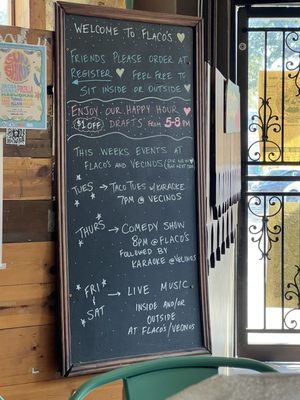 WELCOME TO FLACO'S
FRIENDS PLEASE ORDER AT
REGISTER FEEL FREE TO
SIT INSIDE OR OUTSIDE
ENJOY OUR HAPPY HOUR
$1 OFF DRAFTS FROM 5-8 PM
THIS WEEKS EVENTS AT
FLACO'S AND VECINOS (OUR NEW BAR NEXT DOOR)
TUES → TACO TUES W/ KARAOKE
7PM @ VECINOS
THURS → COMEDY SHOW
8PM @ FLACO'S
FOLLOWED BY
KARAOKE @ VECINOS
FRI → LIVE MUSIC
SAT INSIDE AND/OR
OUTSIDE
AT FLACO'S/VECINOS